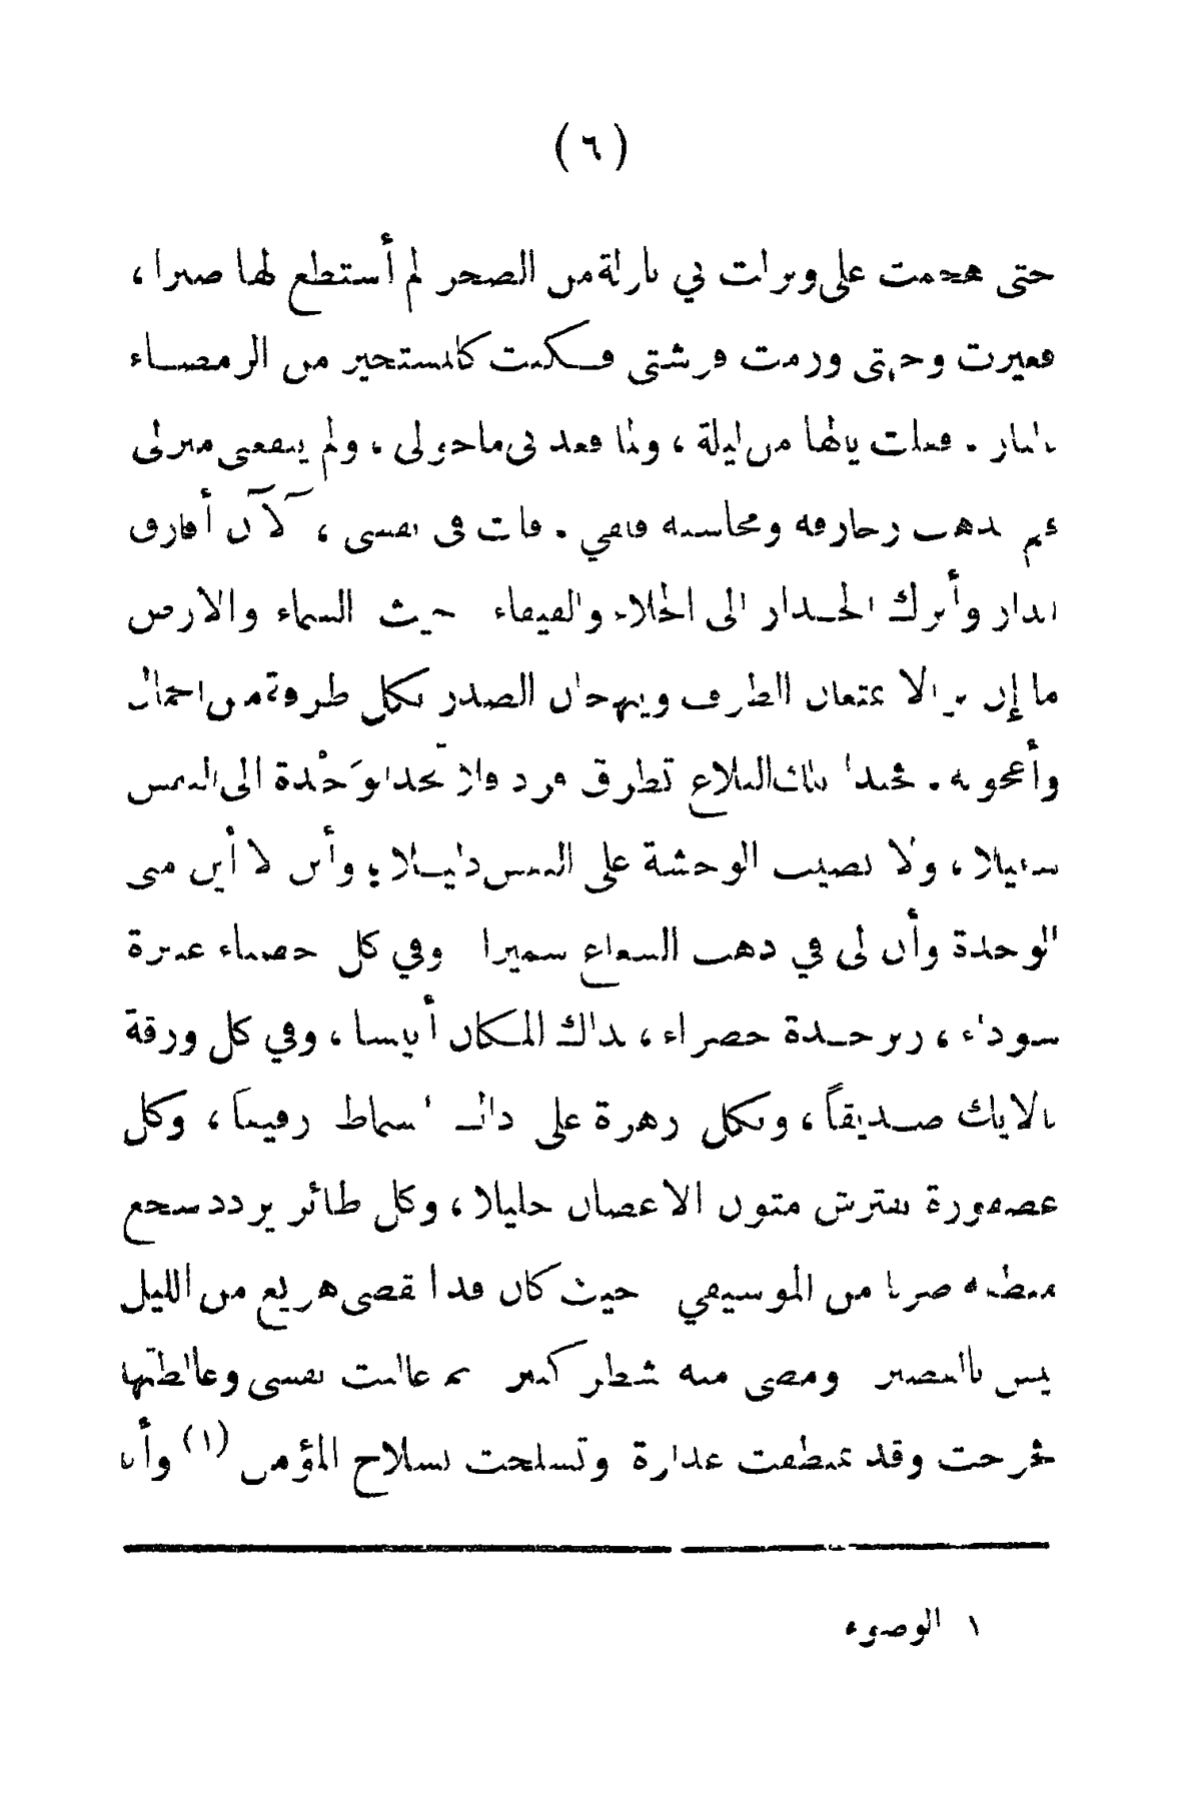 (٦)
حتى هجمت علي ونزلت بي نازلة من الضجر لم أستطع لها صبرا ،
فغيرت وجهتى ورمت فرشتى فكنت كالمستجير من الرمضاء
بالنار . فقلت يالها من ليلة ، ولما قعد بى ماحولى ، ولم ينفعنى منزلى
بذهب زخارفه ومحاسنه . في نفسى ، الآن أفارق
الدار وأترك الجدار الى الخلاء والفيفاء حيث السماء والارض
ما إن الا يمتعان الطرف ويبهجان الصدر بكل طرفة من الجمال
وأعجوبة . تلك البلاع تطرق فرد فلا تجد الوَحْدة الى النفس
سبيلا ، ولا تصيب الوحشة على النفس دليلا ؛ وأين لا أين منى
الوحدة وأن لى في ذهب الشعاع سميرا وفي كل حصباء عنبرة
سوداء ، زبرجدة خضراء ، بذاك المكان أنيسا ، وفي كل ورقة
بالايك صديقاً ، وبكل زهرة على ذلك البساط رفيقا ، وكل
عصفورة تفترش متون الاغصان خليلا ، وكل طائر يردد سجع
منطقه ضربا من الموسيقي حيث كان قد انقضى هزيع من الليل
ليس باليسير ومضى منه شطر كبير ثم غالبت نفسى وغالطتها
فخرجت وقد تمنطقت بغدارة وتسلحت بسلاح المؤمن (١) وأنا
١ الوضوء